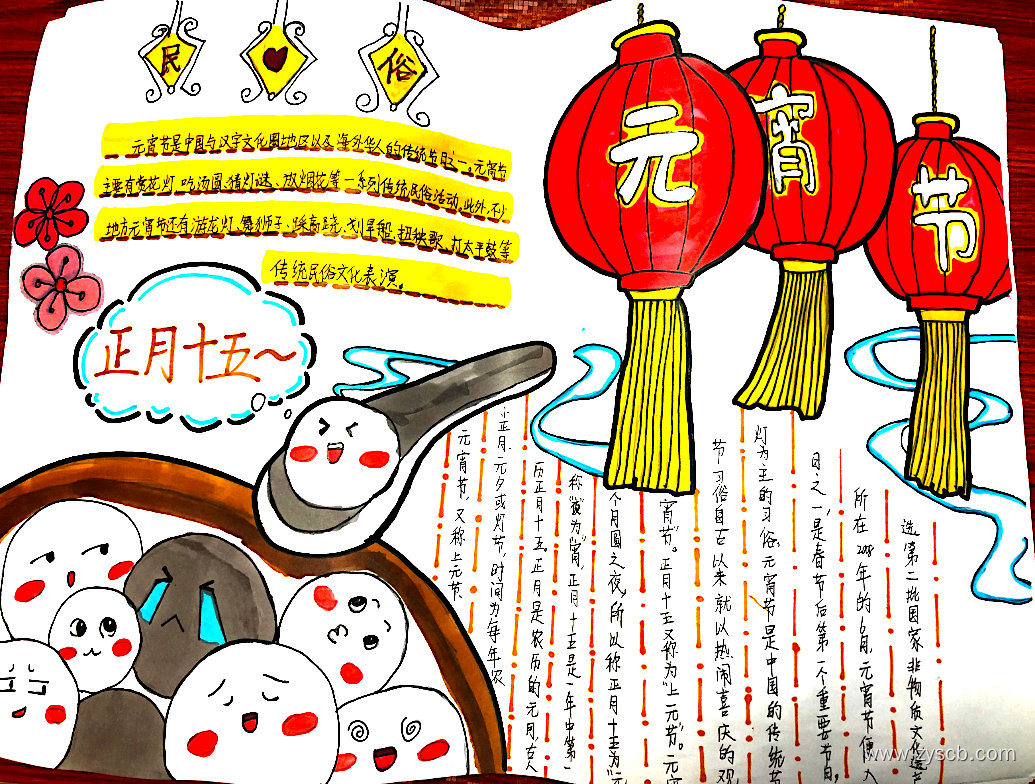 民
俗
元
宵
节
元宵节是中国与汉字文化圈地区以及海外华人的传统节日之一,元宵节
主要有赏花灯、吃汤圆、猜灯谜、放烟花等一系列传统民俗活动。此外,不少
地方元宵节还有游龙灯、舞狮子、踩高跷、划旱船、扭秧歌、打太平鼓等
传统民俗文化表演。
正月十五~
元宵节,又称上元节、
小正月、元夕或灯节,时间为每年农
历正月十五。正月是农历的元月,古人
称"夜"为"宵",正月十五是一年中第一
个月圆之夜,所以称正月十五为"元
宵节"。正月十五又称为"上元节"。元宵
节习俗自古以来就以热闹喜庆的观
灯为主的习俗,元宵节是中国的传统节
日之一,是春节后第一个重要节日,
所在2008年的6月,元宵节便入
选第二批国家非物质文化遗产
www.zyscb.com